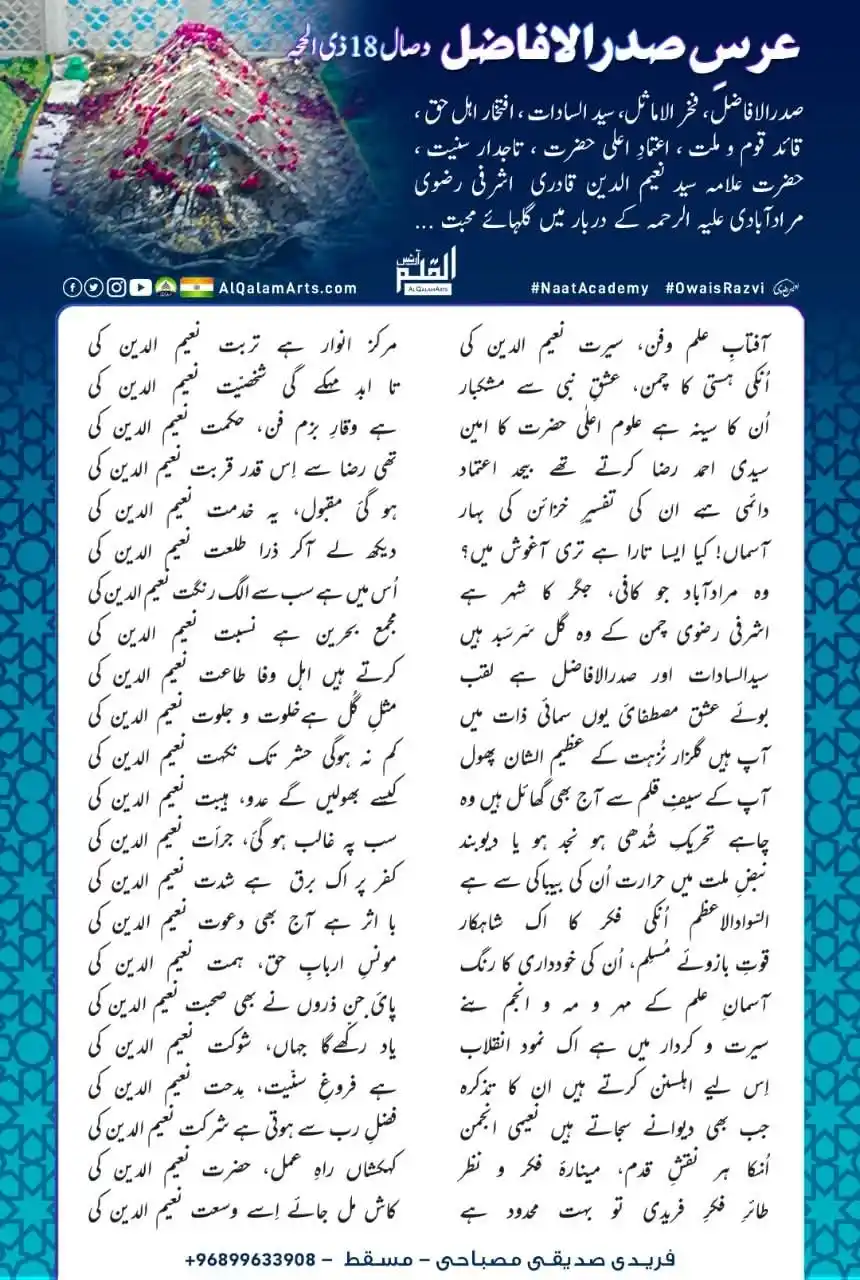 عرسِ صدرالافاضل وصال 18 ذی الحجہ
صدرالافاضل، فخر الاماثل، سید السادات ، افتخار اہل حق ،
قائد قوم و ملت ، اعتمادِ اعلی حضرت ، تاجدار سنیت ،
حضرت علامہ سید نعیم الدین قادری اشرفی رضوی
مرادآبادی علیہ الرحمہ کے دربار میں گلہائے محبت ...
القلم آرٹس
AL QALAM ARTS
AlQalamArts.com #NaatAcademy #OwaisRazvi
آفتابِ علم وفن، سیرت نعیم الدین کی مرکز انوار ہے تربت نعیم الدین کی
اُنکی ہستی کا چمن، عشقِ نبی سے مشکبار تا ابد مہکے گی شخصیّت نعیم الدین کی
اُن کا سینہ ہے علوم اعلٰی حضرت کا امین ہے وقارِ بزم فن، حکمت نعیم الدین کی
سیدی احمد رضا کرتے تھے بیحد اعتماد تھی رضا سے اِس قدر قربت نعیم الدین کی
دائمی ہے ان کی تفسیرِ خزائن کی بہار ہو گئ مقبول، یہ خدمت نعیم الدین کی
آسماں! کیا ایسا تارا ہے تری آغوش میں؟ دیکھ لے آکر ذرا طلعت نعیم الدین کی
وہ مرادآباد جو کافی، جگر کا شہر ہے اُس میں ہے سب سے الگ رنگت نعیم الدین کی
اشرفی رضوی چمن کے وہ گل سَرسَبد ہیں مجمع بحرین ہے نسبت نعیم الدین کی
سیدالسادات اور صدرالافاضل ہے لقب کرتے ہیں اہل وفا طاعت نعیم الدین کی
بوئے عشق مصطفائ یوں سمائ ذات میں مثلِ گُل ہے خلوت و جلوت نعیم الدین کی
آپ ہیں گلزار نُزہت کے عظیم الشان پھول کم نہ ہوگی حشر تک نکہت نعیم الدین کی
آپ کے سیفِ قلم سے آج بھی گھائل ہیں وہ کیسے بھولیں گے عدو، ہیبت نعیم الدین کی
چاہے تحریکِ شُدھی ہو نجد ہو یا دیوبند سب پہ غالب ہو گئ، جرأت نعیم الدین کی
نبضِ ملت میں حرارت اُن کی بیباکی سے ہے کفر پر اک برق ہے شدت نعیم الدین کی
السّوادالاعظم اُنکی فکر کا اک شاہکار با اثر ہے آج بھی دعوت نعیم الدین کی
قوتِ بازوئے مُسلِم، اُن کی خودداری کا رنگ مونسِ اربابِ حق، ہمت نعیم الدین کی
آسمانِ علم کے مہر و مہ و انجم بنے پائ جن ذروں نے بھی صحبت نعیم الدین کی
سیرت و کردار میں ہے اک نمود انقلاب یاد رکّھے گا جہاں، شوکت نعیم الدین کی
اِس لیے اہلسنن کرتے ہیں ان کا تذکرہ ہے فروغِ سنّیت، مِدحت نعیم الدین کی
جب بھی دیوانے سجاتے ہیں نعیمی انجمن فضلِ رب سے ہوتی ہے شرکت نعیم الدین کی
اُنکا ہر نقشِ قدم، مینارۂ فکر و نظر کہکشاں راہِ عمل، حضرت نعیم الدین کی
طائرِ فکرِ فریدی تو بہت محدود ہے کاش مل جائے اِسے وسعت نعیم الدین کی
فریدی صدیقی مصباحی – مسقط – 96899633908+